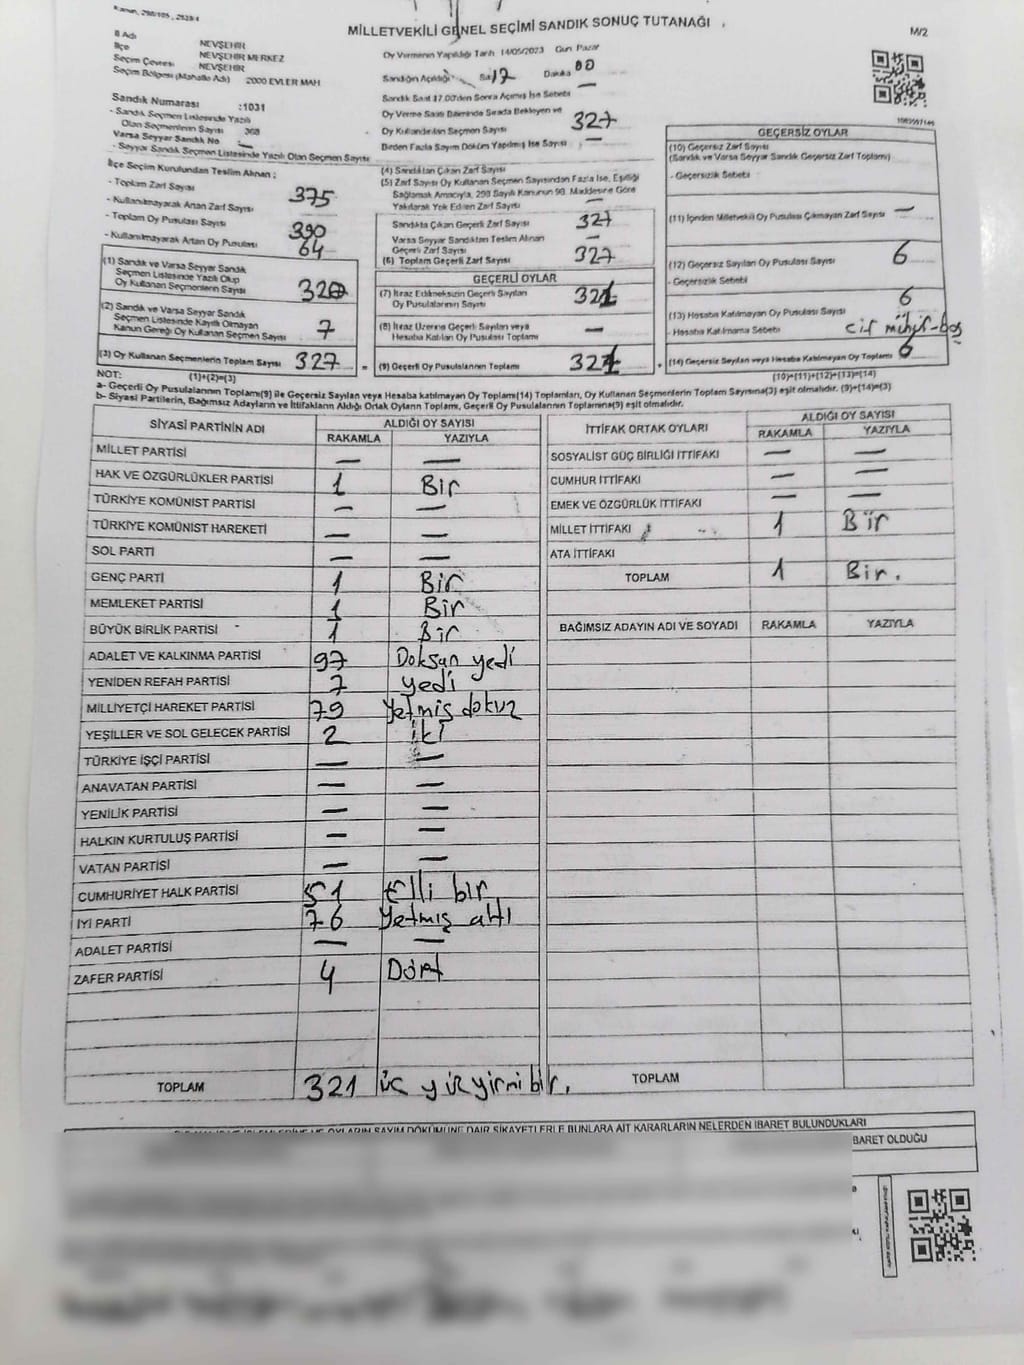 Kanun, 298/105, 2839/4
MİLLETVEKİLİ GENEL SEÇİMİ SANDIK SONUÇ TUTANAĞI
M/2
İl Adı NEVŞEHİR
İlçe NEVŞEHİR MERKEZ
Seçim Çevresi NEVŞEHİR
Seçim Bölgesi (Mahalle Adı) 2000 EVLER MAH
Sandık Numarası :1031
- Sandık Seçmen Listesinde Yazılı
Olan Seçmenlerin Sayısı 368
Varsa Seyyar Sandık No —
- Seyyar Sandık Seçmen Listesinde Yazılı Olan Seçmen Sayısı
İlçe Seçim Kurulundan Teslim Alınan ;
- Toplam Zarf Sayısı 375
- Kullanılmayarak Artan Zarf Sayısı
- Toplam Oy Pusulası Sayısı 390
- Kullanılmayarak Artan Oy Pusulası 64
(1) Sandık ve Varsa Seyyar Sandık
Seçmen Listesinde Yazılı Olup
Oy Kullanan Seçmenlerin Sayısı 320
(2) Sandık ve Varsa Seyyar Sandık
Seçmen Listesinde Kayıtlı Olmayan
Kanun Gereği Oy Kullanan Seçmen Sayısı 7
(3) Oy Kullanan Seçmenlerin Toplam Sayısı 327
Oy Vermenin Yapıldığı Tarih 14/05/2023 Gün Pazar
Sandığın Açıldığı Saat 17 Dakika 00
Sandık Saat 17.00'den Sonra Açılmış İse Sebebi —
Oy Verme Saati Bitiminde Sırada Bekleyen ve
Oy Kullandırılan Seçmen Sayısı 327
Birden Fazla Sayım Döküm Yapılmış İse Sayısı —
(4) Sandıktan Çıkan Zarf Sayısı
(5) Zarf Sayısı Oy Kullanan Seçmen Sayısından Fazla İse, Eşitliği
Sağlamak Amacıyla, 298 Sayılı Kanunun 98. Maddesine Göre
Yakılarak Yok Edilen Zarf Sayısı —
Sandıkta Çıkan Geçerli Zarf Sayısı 327
Varsa Seyyar Sandıktan Teslim Alınan
Geçerli Zarf Sayısı —
(6) Toplam Geçerli Zarf Sayısı 327
GEÇERLİ OYLAR
(7) İtiraz Edilmeksizin Geçerli Sayılan
Oy Pusulalarının Sayısı 321
(8) İtiraz Üzerine Geçerli Sayılan veya
Hesaba Katılan Oy Pusulası Toplamı —
(9) Geçerli Oy Pusulalarının Toplamı 321
GEÇERSİZ OYLAR
(10) Geçersiz Zarf Sayısı
(Sandık ve Varsa Seyyar Sandık Geçersiz Zarf Toplamı)
- Geçersizlik Sebebi
(11) İçinden Milletvekili Oy Pusulası Çıkmayan Zarf Sayısı —
(12) Geçersiz Sayılan Oy Pusulası Sayısı 6
- Geçersizlik Sebebi
(13) Hesaba Katılmayan Oy Pusulası Sayısı 6
- Hesaba Katılmama Sebebi çift mühür-boş
(14) Geçersiz Sayılan veya Hesaba Katılmayan Oy Pusulası Toplamı 6
NOT: (1)+(2)=(3) (10)+(11)+(12)+(13)=(14)
a- Geçerli Oy Pusulalarının Toplamı(9) ile Geçersiz Sayılan veya Hesaba katılmayan Oy Pusulası(14) Toplamları, Oy Kullanan Seçmenlerin Toplam Sayısına(3) eşit olmalıdır. (9)+(14)=(3)
b- Siyasi Partilerin, Bağımsız Adayların ve İttifakların Aldığı Ortak Oyların Toplamı, Geçerli Oy Pusulalarının Toplamına(9) eşit olmalıdır.
SİYASİ PARTİNİN ADI ALDIĞI OY SAYISI
RAKAMLA YAZIYLA
MİLLET PARTİSİ — —
HAK VE ÖZGÜRLÜKLER PARTİSİ 1 Bir
TÜRKİYE KOMÜNİST PARTİSİ — —
TÜRKİYE KOMÜNİST HAREKETİ — —
SOL PARTİ — —
GENÇ PARTİ 1 Bir
MEMLEKET PARTİSİ 1 Bir
BÜYÜK BİRLİK PARTİSİ 1 Bir
ADALET VE KALKINMA PARTİSİ 97 Doksan yedi
YENİDEN REFAH PARTİSİ 7 yedi
MİLLİYETÇİ HAREKET PARTİSİ 79 yetmiş dokuz
YEŞİLLER VE SOL GELECEK PARTİSİ 2 iki
TÜRKİYE İŞÇİ PARTİSİ — —
ANAVATAN PARTİSİ — —
YENİLİK PARTİSİ — —
HALKIN KURTULUŞ PARTİSİ — —
VATAN PARTİSİ — —
CUMHURİYET HALK PARTİSİ 51 Elli bir
İYİ PARTİ 76 Yetmiş altı
ADALET PARTİSİ — —
ZAFER PARTİSİ 4 Dört
TOPLAM 321 üç yüz yirmi bir.
İTTİFAK ORTAK OYLARI ALDIĞI OY SAYISI
RAKAMLA YAZIYLA
SOSYALİST GÜÇ BİRLİĞİ İTTİFAKI — —
CUMHUR İTTİFAKI — —
EMEK VE ÖZGÜRLÜK İTTİFAKI — —
MİLLET İTTİFAKI 1 Bir
ATA İTTİFAKI
TOPLAM 1 Bir.
BAĞIMSIZ ADAYIN ADI VE SOYADI RAKAMLA YAZIYLA
TOPLAM
OYLARIN SAYIM DÖKÜMÜNE DAİR ŞİKAYETLERLE BUNLARA AİT KARARLARIN NELERDEN İBARET BULUNDUKLARI
BARET OLDUĞU